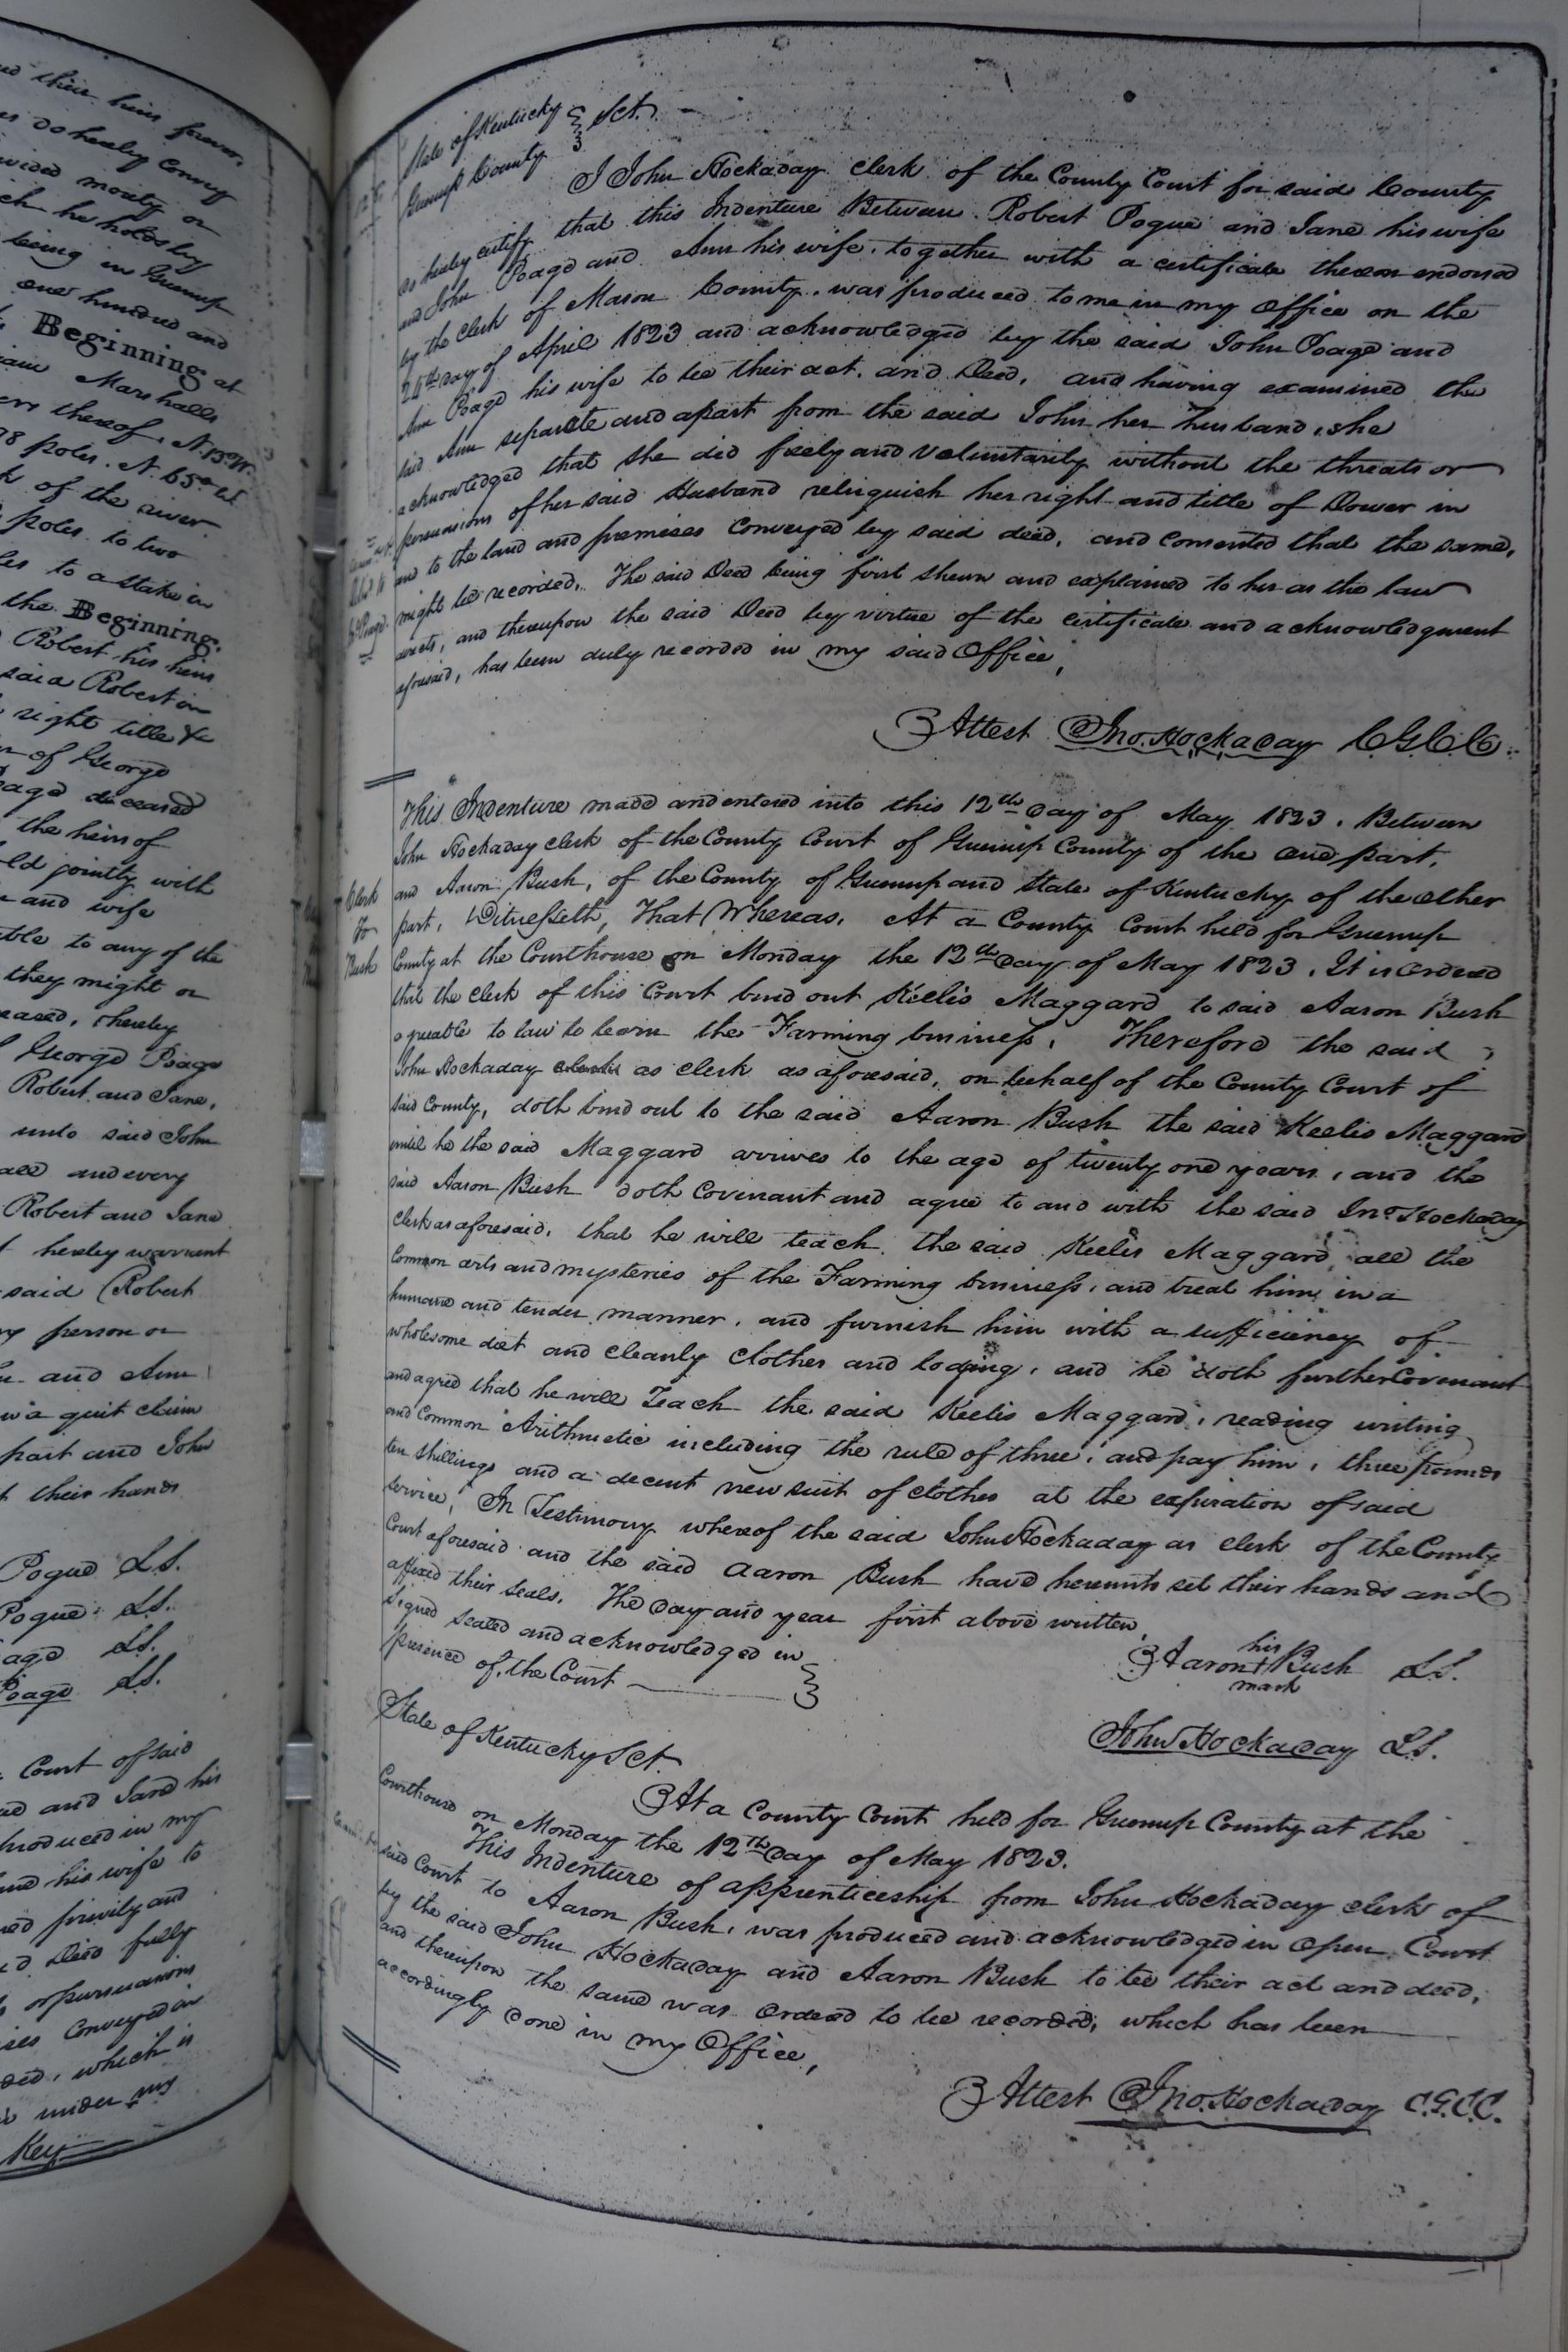 ed their heirs forever.
es do hereby convey
vided moiety or
ch he holds by
being in Greenup
one hundred and
Beginning at
Marshalls
ers thereof, N. 13 W.
98 poles. N. 65° W
k of the river
poles to two
les to a stake in
the Beginning.
Robert his heirs
said Robert in
right title &c
n of George
oage deceased
the heirs of
ld jointly with
and wife
ble to any of the
they might or
eased, thereby
George Poage
Robert and Jane,
unto said John
all and every
Robert and Jane
hereby warrant
said Robert
ny person or
n and Ann
a quit claim
part and John
t their hands
Pogue LS.
Pogue LS.
age LS.
Poage LS.
Court of said
ue and Jane his
produced in my
and his wife to
ed privily and
d Deed fully
s or persuasions
ises Conveyed in
ded, which is
under my
Key
State of Kentucky } Sct.
Greenup County
I John Hockaday Clerk of the County Court for said County
do hereby certify that this Indenture Between Robert Pogue and Jane his wife
and John Poage and Ann his wife, together with a certificate thereon endorsed
by the Clerk of Mason County, was produced to me in my Office on the
24th day of April 1823 and acknowledged by the said John Poage and
Ann Poage his wife to be their act, and Deed, and having examined the
said Ann separate and apart from the said John her Husband, she
acknowledged that she did freely and voluntarily without the threats or
persuasions of her said Husband relinquish her right and title of Dower in
and to the land and premises Conveyed by said deed, and consented that the same,
might be recorded, The said Deed being first shewn and explained to her as the law
directs, and thereupon the said Deed by virtue of the certificate and acknowledgment
aforesaid, has been duly recorded in my said Office,
Attest Jno. Hockaday C.G.C.C.
This Indenture made and entered into this 12th day of May 1823, Between
John Hockaday clerk of the County Court of Greenup County of the one part,
Clerk
To
Bush
and Aaron Bush, of the County of Greenup and State of Kentucky of the other
part, Witnesseth, That Whereas, At a County Court held for Greenup
County at the Courthouse on Monday the 12th day of May 1823, It is ordered
that the clerk of this Court bind out Keelis Maggard to said Aaron Bush
agreeable to law to learn the Farming business, Therefore the said
John Hockaday as clerk as aforesaid, on behalf of the County Court of
said County, doth bind out to the said Aaron Bush the said Keelis Maggard
untill he the said Maggard arrives to the age of twenty one years, and the
said Aaron Bush doth Covenant and agree to and with the said Jno Hockaday
Clerk as aforesaid, that he will teach the said Keelis Maggard, all the
Common arts and mysteries of the Farming business, and treat him in a
humane and tender manner, and furnish him with a sufficiency of
wholesome diet and cleanly clothes and lodging, and he doth further Covenant
and agree that he will Teach the said Keelis Maggard, reading writing
and Common Arithmetic including the rule of three, and pay him, three pounds
ten shillings and a decent new suit of clothes at the expiration of said
service, In Testimony whereof the said John Hockaday as clerk of the County
Court aforesaid and the said Aaron Bush have hereunto set their hands and
affixed their seals, The day and year first above written,
Signed sealed and acknowledged in
presence of the Court
his
Aaron + Bush LS.
mark
John Hockaday LS.
State of Kentucky Sct.
At a County Court held for Greenup County at the
Courthouse on Monday the 12th day of May 1823.
This Indenture of apprenticeship from John Hockaday clerk of
said Court to Aaron Bush, was produced and acknowledged in open Court
by the said John Hockaday and Aaron Bush to be their act and deed,
and thereupon the same was ordered to be recorded, which has been
accordingly done in my Office,
Attest Jno. Hockaday C.G.C.C.